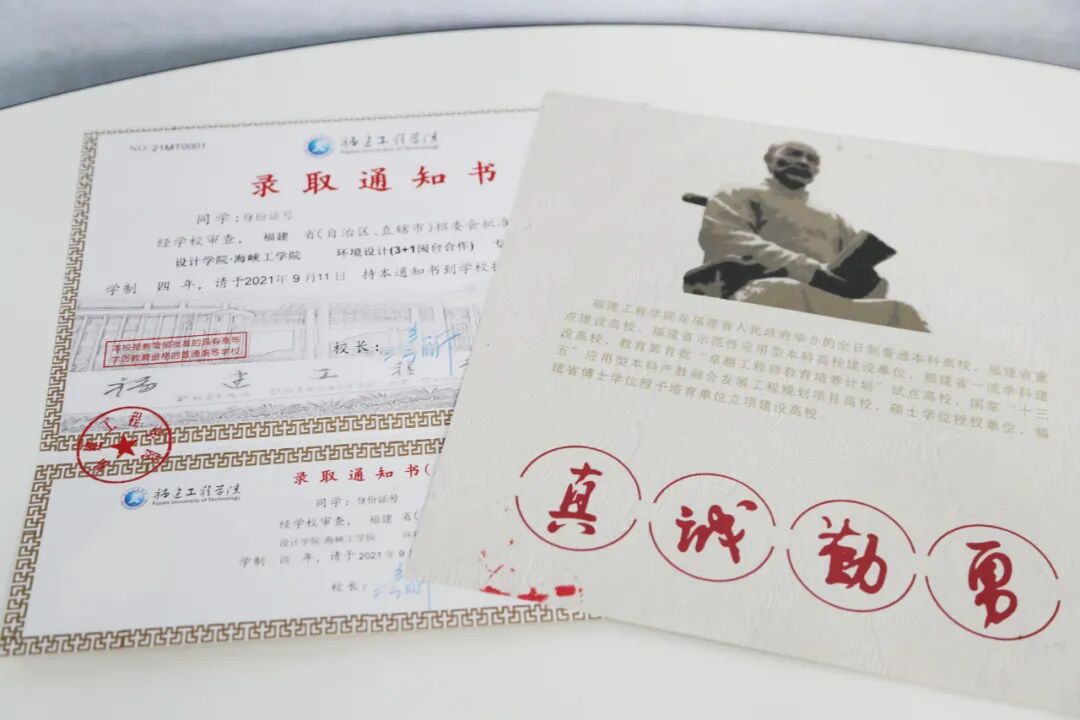 NO: 21MT0001
福建工程学院
Fujian University of Technology
录取通知书
同学：身份证号
经学校审查， 福建 省(自治区、直辖市)招委会批准
设计学院·海峡工学院 环境设计(3+1闽台合作) 专
学制 四 年，请于2021年 9 月 11 日 持本通知书到学校
本校是教育部批准的具有高等
学历教育资格的普通高等学校
校长：
福建工程
福建工程学院
Fujian University of Technology
录取通知书(
同学：身份证号
经学校审查， 福建 省(
设计学院·海峡工学院 环
学制 四 年，请于 2021 年 9 月
校长：
福建工程学院是福建省人民政府举办的全日制普通本科高校，福建省重
点建设高校、福建省示范性应用型本科高校建设单位，福建省一流学科建
设高校，教育部首批“卓越工程师教育培养计划”试点高校，国家“十三
五”应用型本科产教融合发展工程规划项目高校，硕士学位授权单位，福
建省博士学位授予培育单位立项建设高校。
真 诚 勤 勇